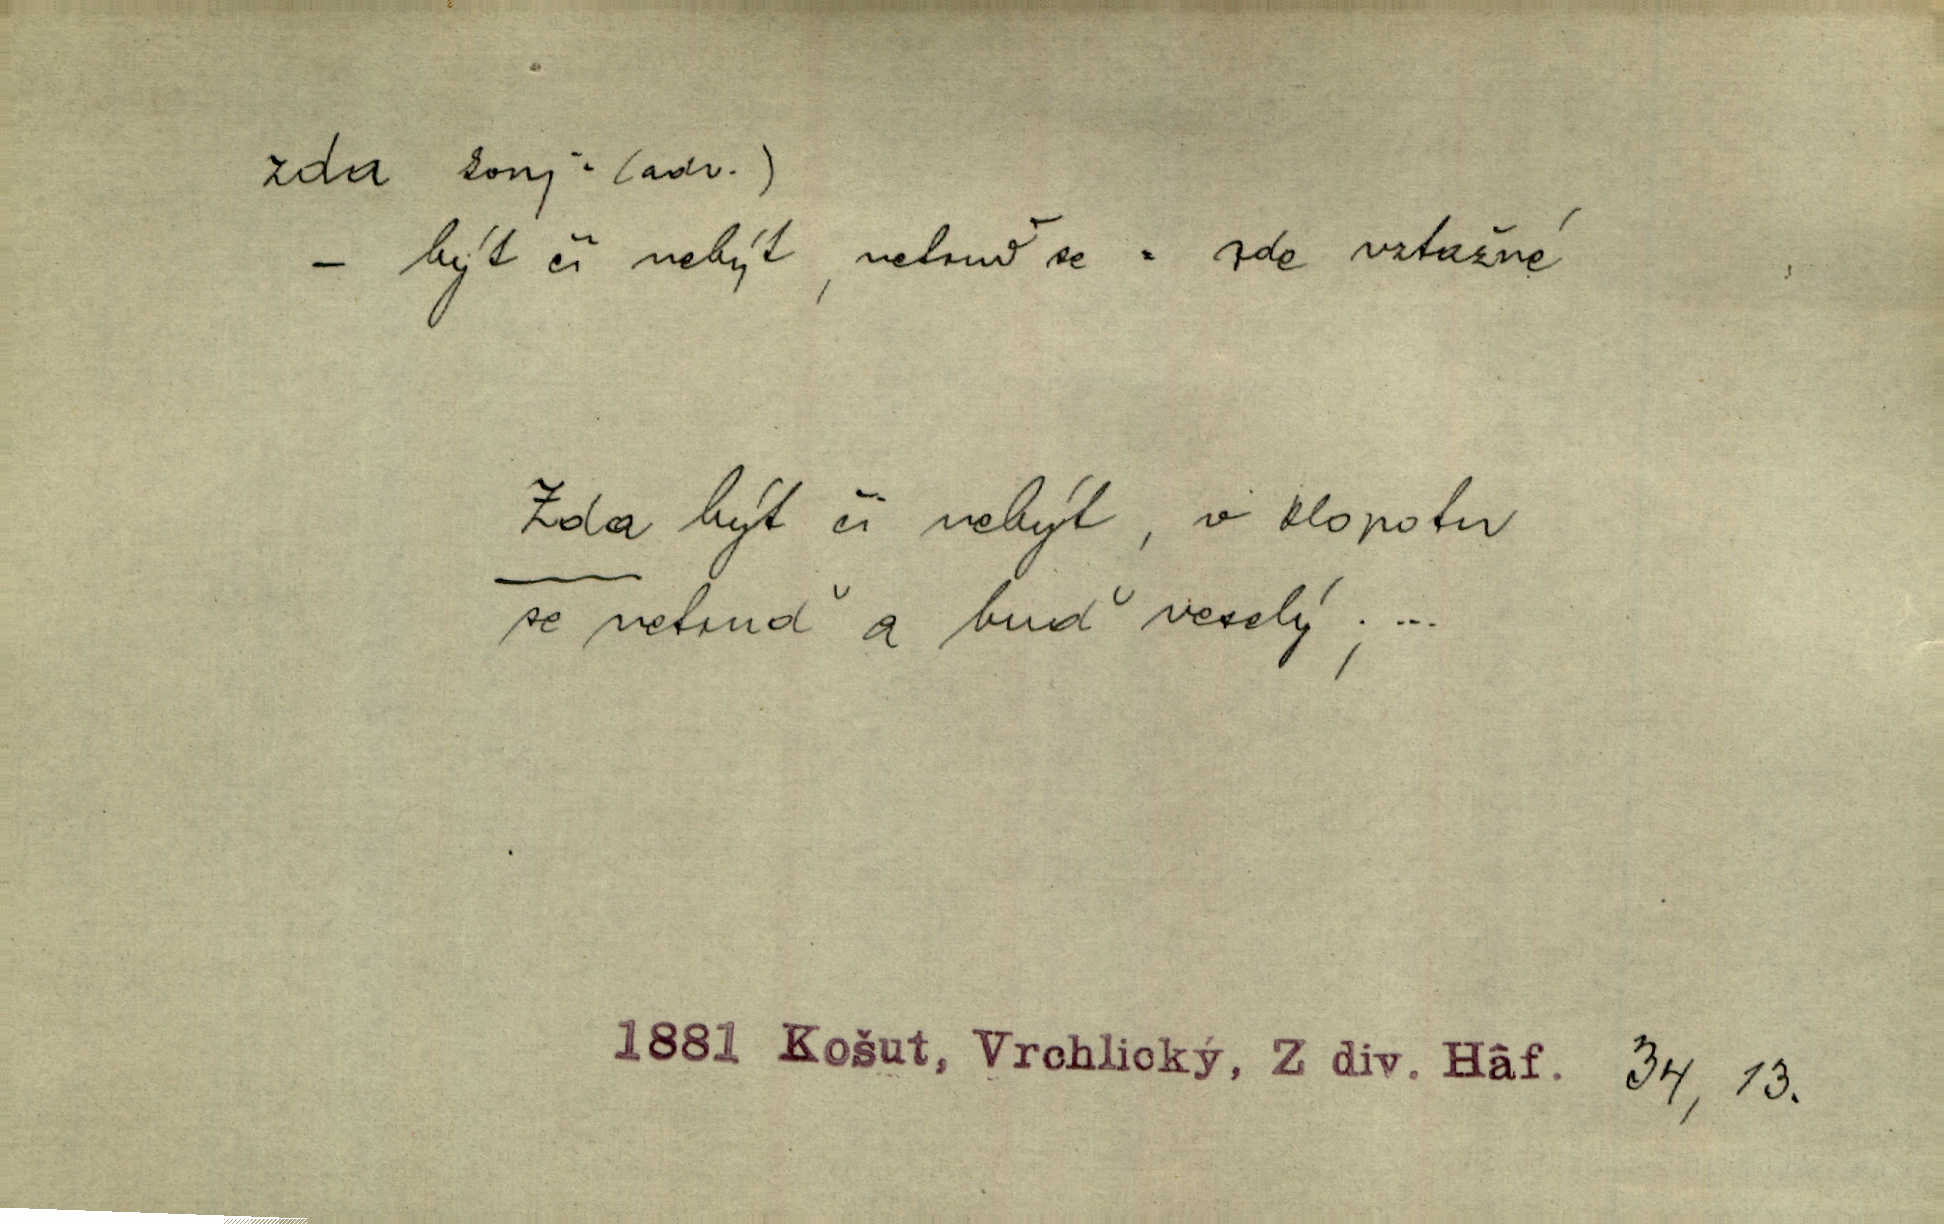 zda konj. (adv.)
– být či nebýt, netruď se - zde vztažné
Zda být či nebýt, v klopotu
se netruď a buď veselý; ...
1881 Košut, Vrchlický, Z div. Hâf. 34, 13.